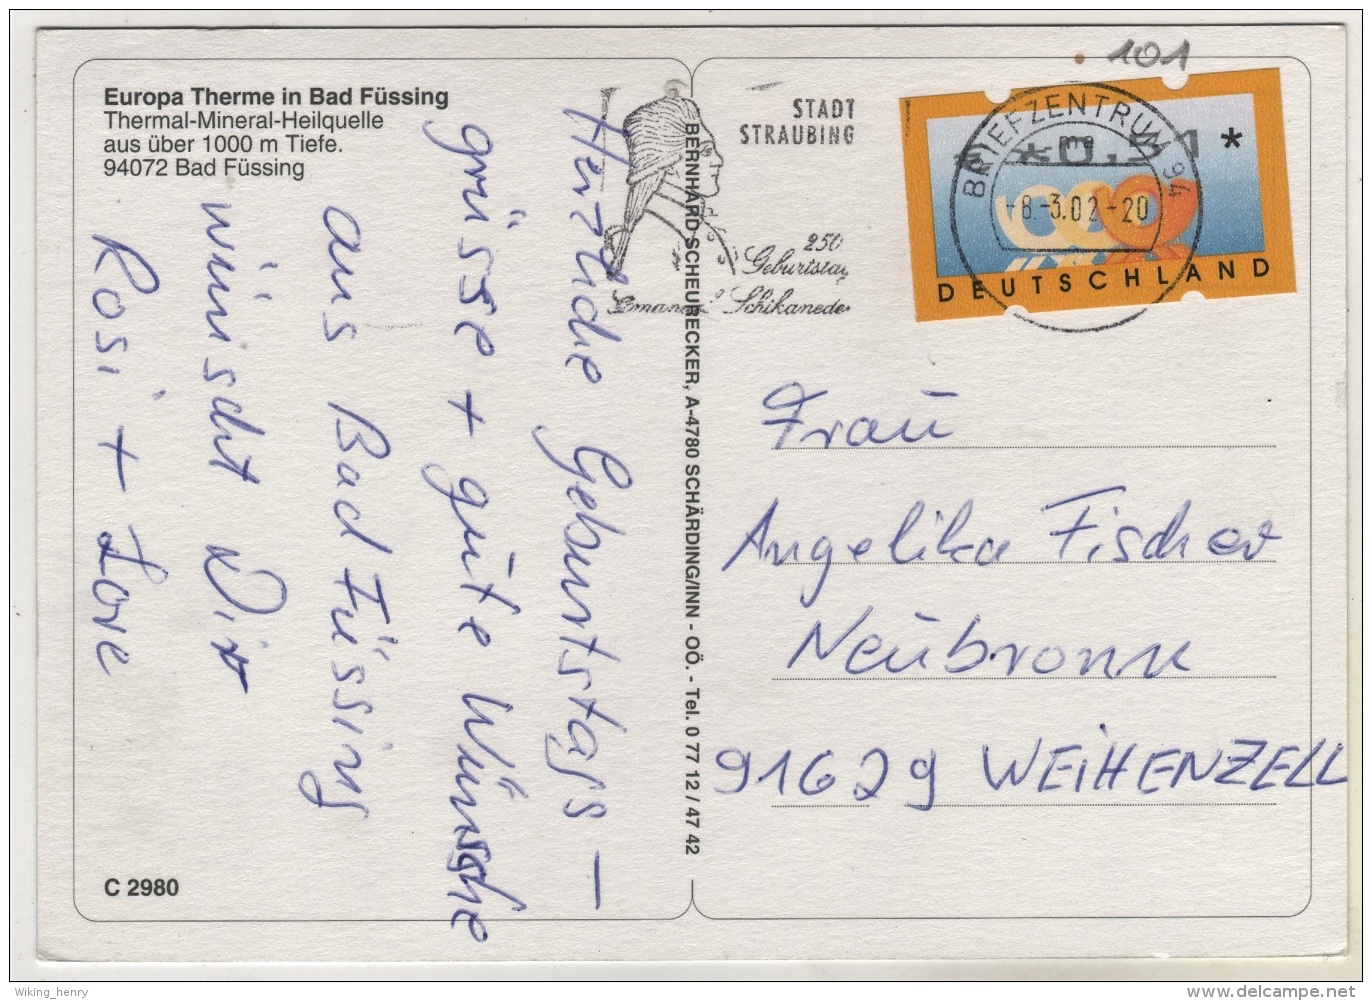 101
Europa Therme in Bad Füssing
Thermal-Mineral-Heilquelle
aus über 1000 m Tiefe.
94072 Bad Füssing
Herzliche Geburtstags-
grüsse + gute Wünsche
aus Bad Füssing
wünscht Dir
Rosi + Lore
C 2980
BERNHARD SCHEURECKER, A-4780 SCHÄRDING/INN - OÖ. - Tel. 0 77 12 / 47 42
STADT
STRAUBING
250
Geburtstag
Emanuel Schikaneder
BRIEFZENTRUM 94
-8.-3.02-20
DEUTSCHLAND
Frau
Angelika Fischer
Neubronn
91629 WEIHENZELL
Wiking_henry
delcampe.net